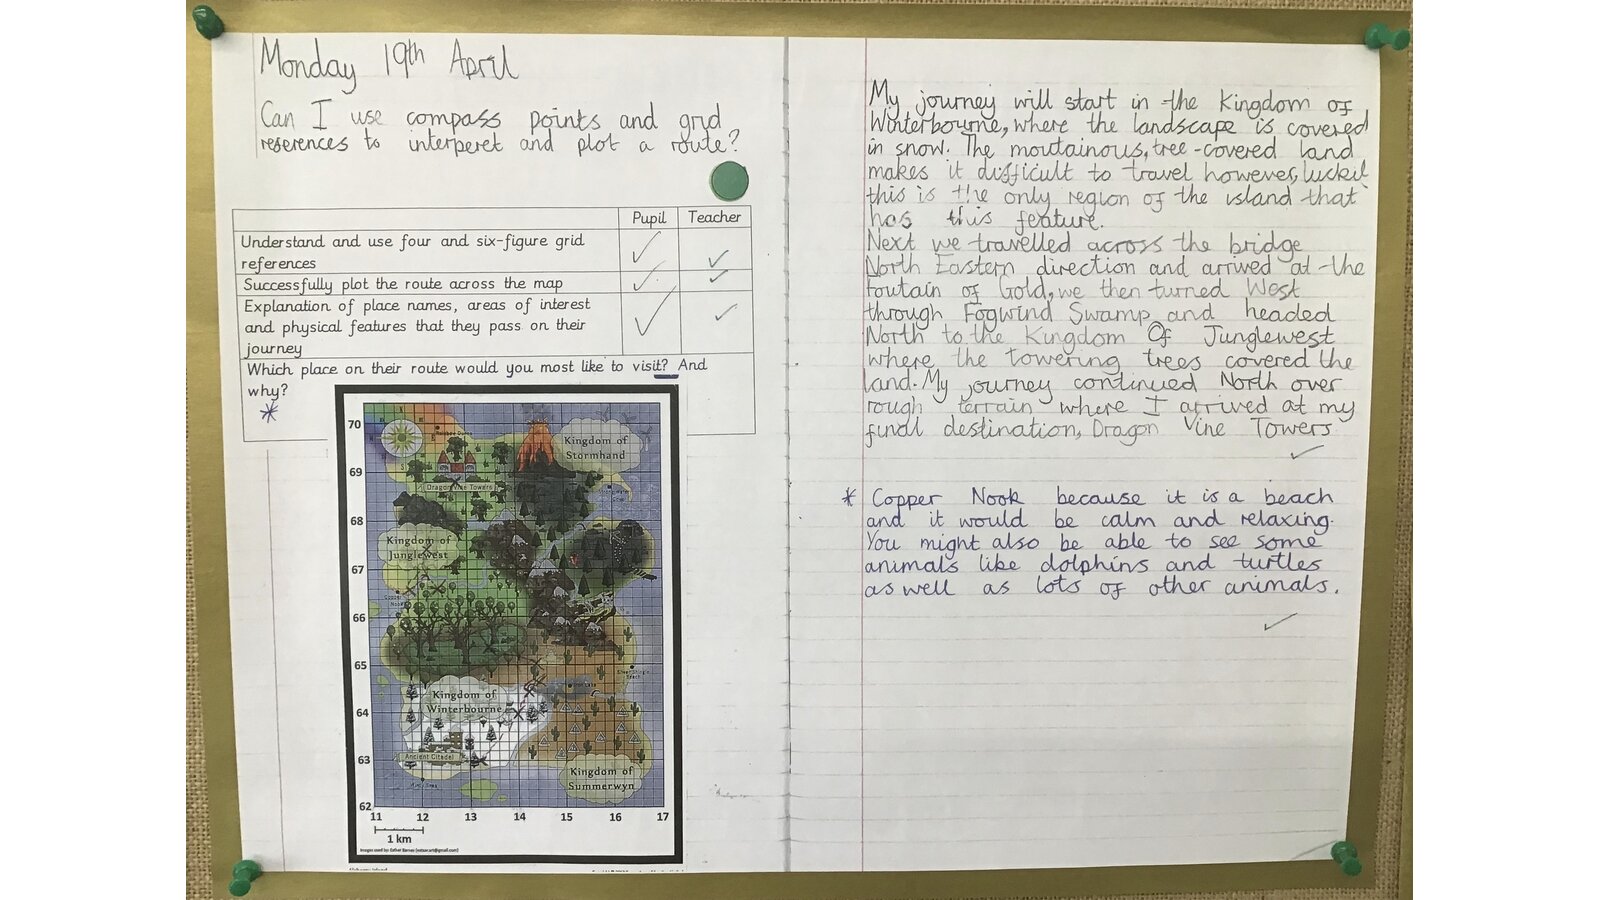 Monday 19th April
Can I use compass points and grid
reserences to interperet and plot a route?
Pupil Teacher
Understand and use four and six-figure grid
references
Successfully plot the route across the map
Explanation of place names, areas of interest
and physical features that they pass on their
journey
Which place on their route would you most like to visit? And
why?
*
70
69
68
67
66
65
64
63
62
11 12 13 14 15 16 17
1 km
Kingdom of
Stormhand
Dragon Vine Towers
Kingdom of
Junglewest
Copper
Nook
Kingdom of
Winterbourne
Ancient Citadel
Kingdom of
Summerwyn
My journey will start in the Kingdom of
Winterbourne, where the landscape is covered
in snow. The moutainous, tree-covered land
makes it difficult to travel however, luckil
this is the only region of the island that
has this feature.
Next we travelled across the bridge
North Eastern direction and arrived at the
Foutain of Gold, we then turned West
through Fogwind Swamp and headed
North to the Kingdom Of Junglewest
where the towering trees covered the
land. My journey continued North over
rough terrain where I arrived at my
final destination, Dragon Vine Towers
* Copper Nook because it is a beach
and it would be calm and relaxing.
You might also be able to see some
animals like dolphins and turtles
as well as lots of other animals.